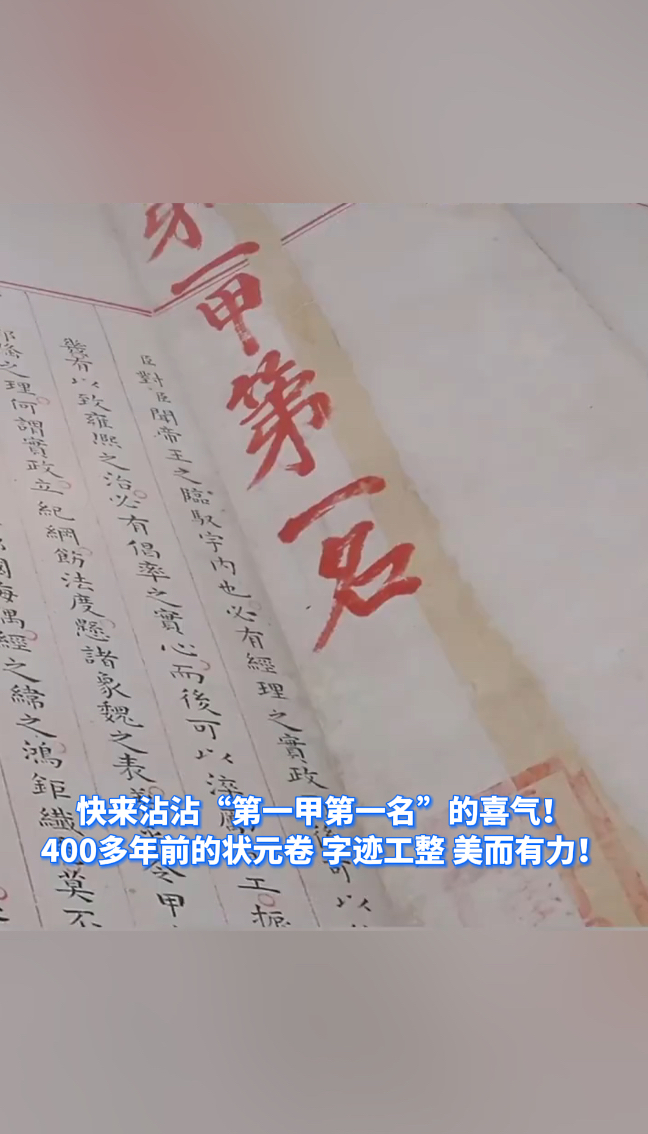 第一甲第一名
臣對臣聞帝王之臨馭宇內也必有經理之實政
後可以
體有以致雍熙之治必有倡率之實心而後可以
工振
之理何謂實政立紀綱飭法度懸諸象魏之表
甲
海隅經之緯之鴻鉅纖
莫不
快来沾沾“第一甲第一名”的喜气！
400多年前的状元卷 字迹工整 美而有力！